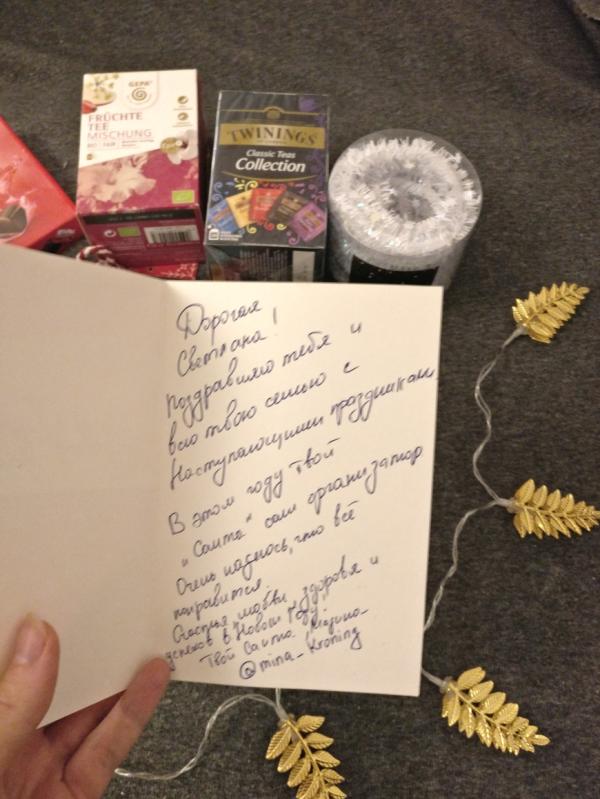 GEPA
FRÜCHTE
TEE
MISCHUNG
TWININGS
Classic Teas
Collection
Дорогая
Светлана!
Поздравляю тебя и
всю твою семью с
Наступающими праздниками
В этом году твой
"Санта" сам организатор
Очень надеюсь, что всё
понравится.
Счастья, любви, здоровья и
успехов в Новом Году,
Твой Санта
@mina_kroning